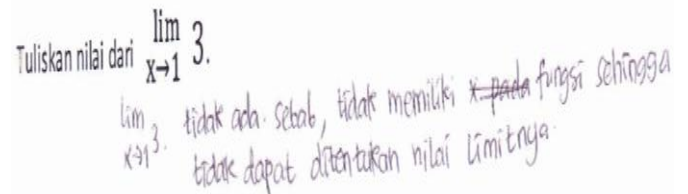 Tuliskan nilai dari lim x→1 3.
lim x→1 3. tidak ada. sebab, tidak memiliki x pada fungsi sehingga
tidak dapat ditentukan nilai limitnya.